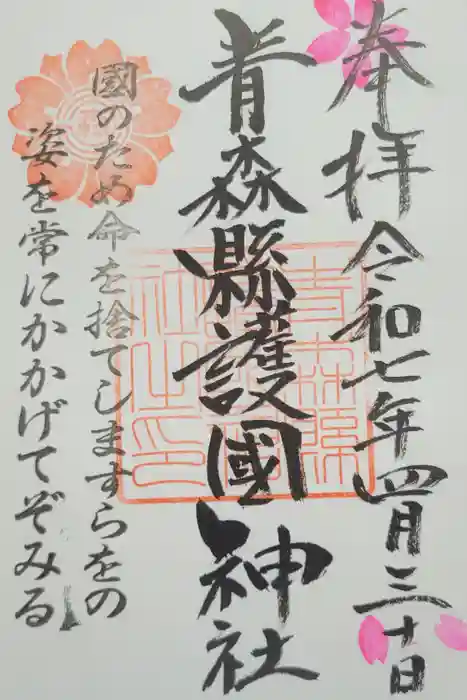 奉拝 令和七年四月三十日
青森縣護國神社
國のため命を捨てしますらをの
姿を常にかかげてぞみる
青森縣護國神社之印